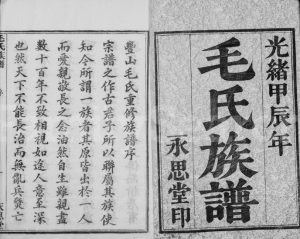 光緒甲辰年
毛氏族譜
永思堂印
豐山毛氏重修族譜序
宗譜之作古君子所以聯屬其族使
知今所謂一族者其原皆出於一人
而愛親敬長之念油然自生雖親盡
數十百年不致相視如途人意至深
也然天下不能長治而無亂兵燹亡
毛氏族譜